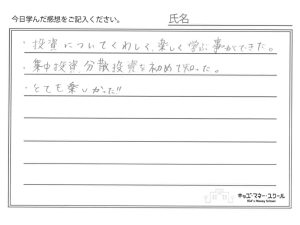 今日学んだ感想をご記入ください。 氏名
・投資についてくわしく、楽しく学ぶ事ができた。
・集中投資 分散投資を初めて知った。
・とても楽しかった!!
キッズ・マネー・スクール
Kid's Money School